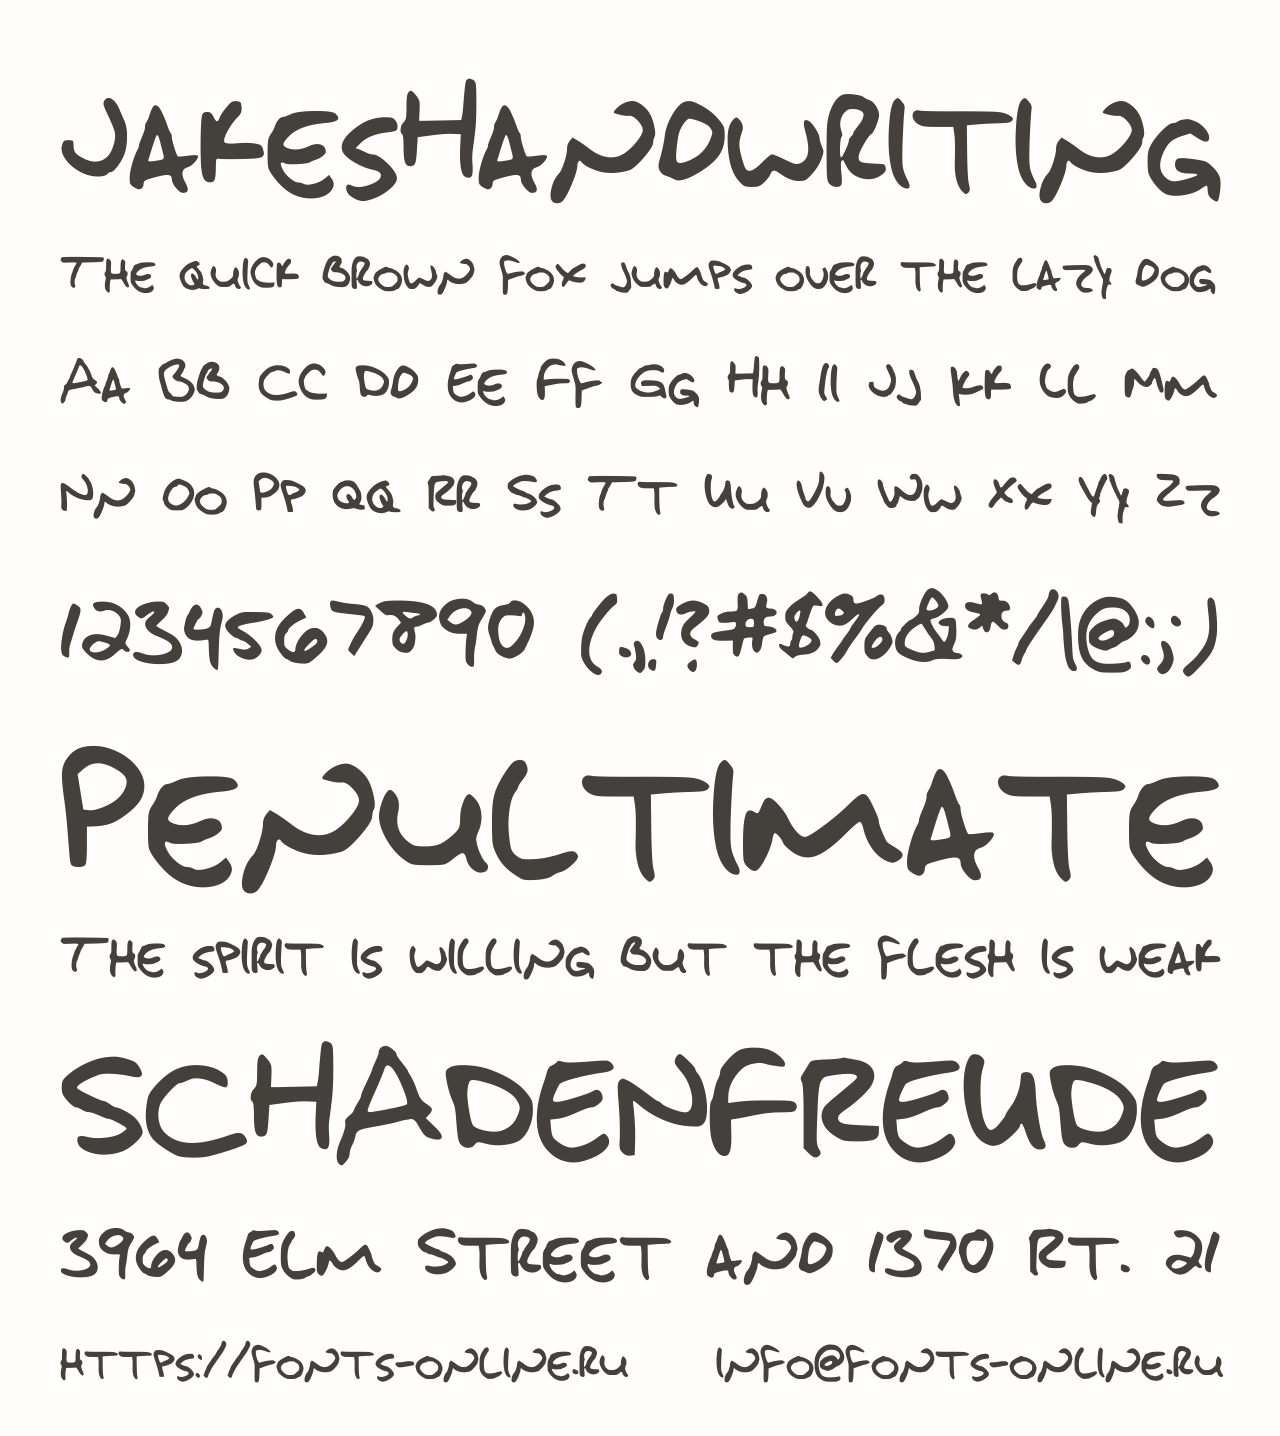 JAKESHANDWRITING
THE QUICK BROWN FOX JUMPS OVER THE LAZY DOG
AA BB CC DD EE FF GG HH II JJ KK LL MM
NN OO PP QQ RR SS TT UU VV WW XX YY ZZ
1234567890 (.,!?#$%&*/\@:;)
PENULTIMATE
THE SPIRIT IS WILLING BUT THE FLESH IS WEAK
SCHADENFREUDE
3964 ELM STREET AND 1370 RT. 21
HTTPS://FONTS-ONLINE.RU INFO@FONTS-ONLINE.RU